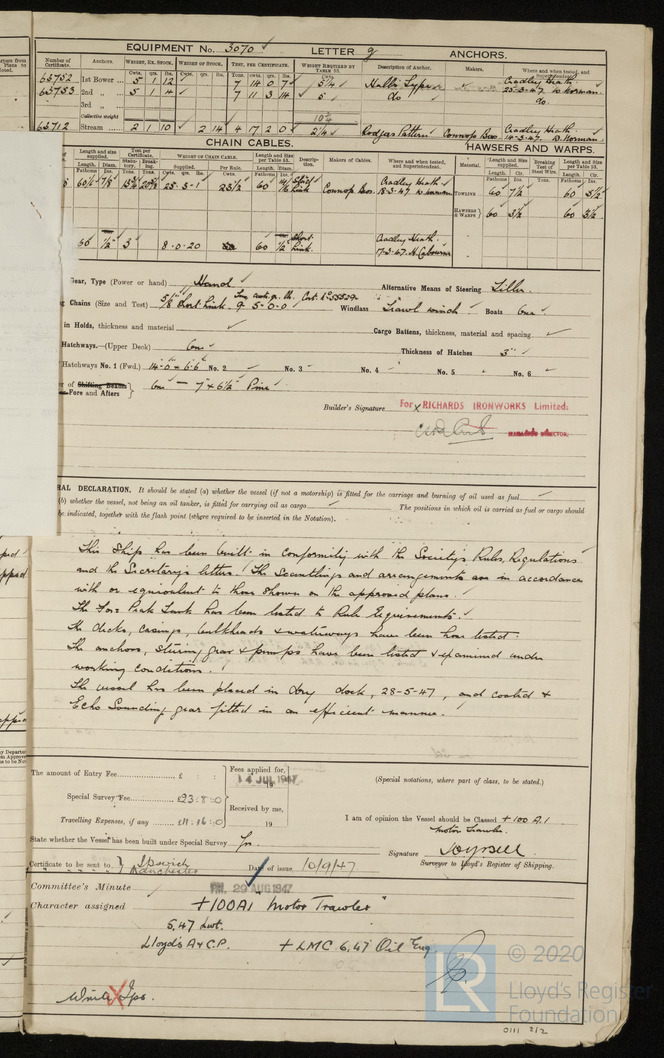 EQUIPMENT No. 3070 LETTER g ANCHORS.
Number of Certificate. Anchors. WEIGHT, EX. STOCK. WEIGHT OF STOCK. TEST, PER CERTIFICATE. WEIGHT REQUIRED BY TABLE 53. Description of Anchor. Makers. Where and when tested, and
Cwts. qrs. lbs. Cwts. qrs. lbs. Tons. cwts. qrs. lbs. Cwts.
63752 1st Bower 5 1 12 7 14 0 7 5 1/4 Halls Type Cradley Heath
63753 2nd 5 1 14 7 11 3 14 5 do 25-3-47. D. Norman
3rd do.
Collective weight 10 1/4
63712 Stream 2 1 10 2 14 4 17 2 0 2 1/4 Rodgers Pattern Connop Bros Cradley Heath
14-3-47. D. Norman
CHAIN CABLES. HAWSERS AND WARPS.
Length and size supplied. Test per Certificate. WEIGHT OF CHAIN CABLE. Length and Size per Table 53. Description. Makers of Cables. Where and when tested, and Superintendent. Material. Length and Size supplied. Breaking Test of Steel Wire. Length and Size per Table 53.
Connop Bros. Cradley Heath
18-3-47. D. Norman
TOWLINE 60 7 1/2 60 5 1/2
HAWSERS & WARPS 60 3 1/2 60 3 1/2
60 1/2 3 8-0-20 60 1/2 Short Link Cradley Heath.
17-3-47. H. Cabourne
Gear, Type (Power or hand) Hand Alternative Means of Steering Tiller
Chains (Size and Test) 5/8 Short Link 9. 5-0-0 Windlass Trawl winch Boats One
in Holds, thickness and material Cargo Battens, thickness, material and spacing
Hatchways.—(Upper Deck) One Thickness of Hatches 3"
Hatchways No. 1 (Fwd.) 14-0 x 6-6 No. 2 No. 3 No. 4 No. 5 No. 6
of Shifting Beams
Fore and Afters One — 7 x 6 1/2 Pine
Builder's Signature For RICHARDS IRONWORKS Limited:
MANAGING DIRECTOR.
RAL DECLARATION. It should be stated (a) whether the vessel (if not a motorship) is fitted for the carriage and burning of oil used as fuel
(b) whether the vessel, not being an oil tanker, is fitted for carrying oil as cargo The positions in which oil is carried as fuel or cargo should
be indicated, together with the flash point (where required to be inserted in the Notation).
This Ship has been built in conformity with the Society's Rules, Regulations
and the Secretary's letters. The Scantlings and arrangements are in accordance
with or equivalent to those shown on the approved plans.
The Fore Peak Tank has been tested to Rule Requirements.
The decks, casings, bulkheads & waterways have been hose tested.
The anchors, steering gear & pumps have been tested & examined under
working conditions.
The vessel has been placed in dry dock, 28-5-47, and coated &
Echo Sounding gear fitted in an efficient manner.
The amount of Entry Fee £ : : Fees applied for,
14 JUL 1947
19
(Special notations, where part of class, to be stated.)
Special Survey Fee £23:8:0
Received by me,
Travelling Expenses, if any £11:16:0 19
I am of opinion the Vessel should be Classed +100 A.1
Motor Trawler.
State whether the Vessel has been built under Special Survey Yes
Signature
Surveyor to Lloyd's Register of Shipping.
Certificate to be sent to Ipswich
Manchester Date of issue 10/9/47
Committee's Minute FRI. 29 AUG 1947
Character assigned +100A1 "Motor Trawler"
5.47 Lwt.
Lloyd's A & C.P. + LMC 6.47 Oil Eng
Write Ips.
LR
© 2020
Lloyd's Register
Foundation
0111 2/2